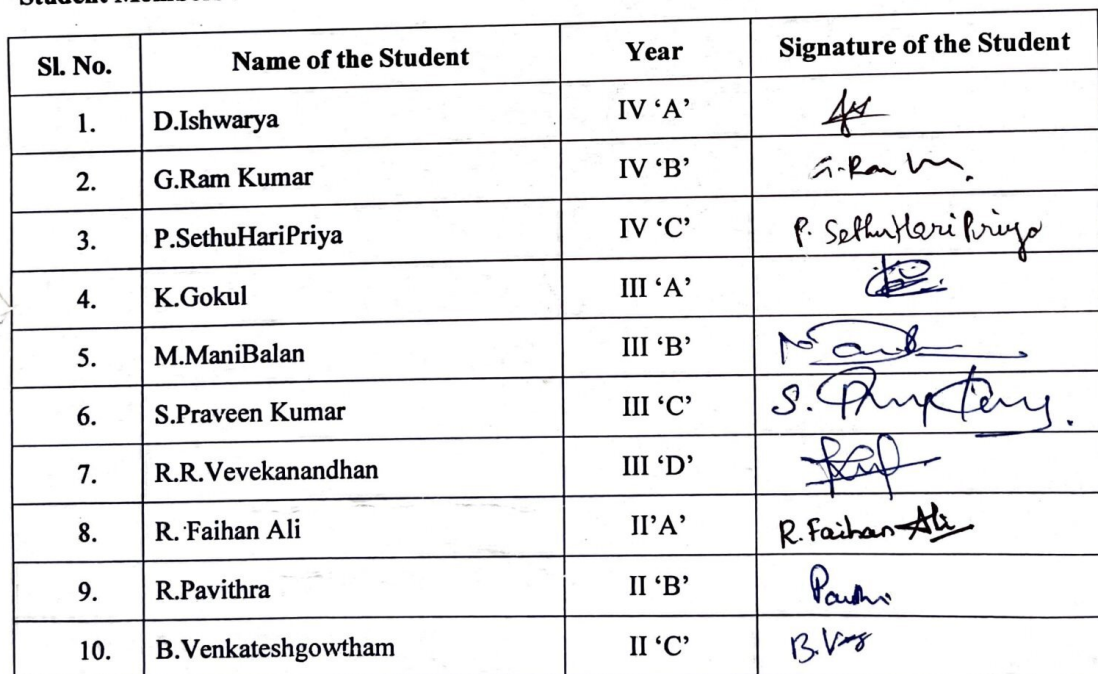 Sl. No. Name of the Student Year Signature of the Student
1. D.Ishwarya IV ‘A’
2. G.Ram Kumar IV ‘B’ G.Ram
3. P.SethuHariPriya IV ‘C’ P. SethuHariPriya
4. K.Gokul III ‘A’
5. M.ManiBalan III ‘B’
6. S.Praveen Kumar III ‘C’ S.
7. R.R.Vevekanandhan III ‘D’
8. R. Faihan Ali II’A’ R.Faihan Ali
9. R.Pavithra II ‘B’
10. B.Venkateshgowtham II ‘C’ B.